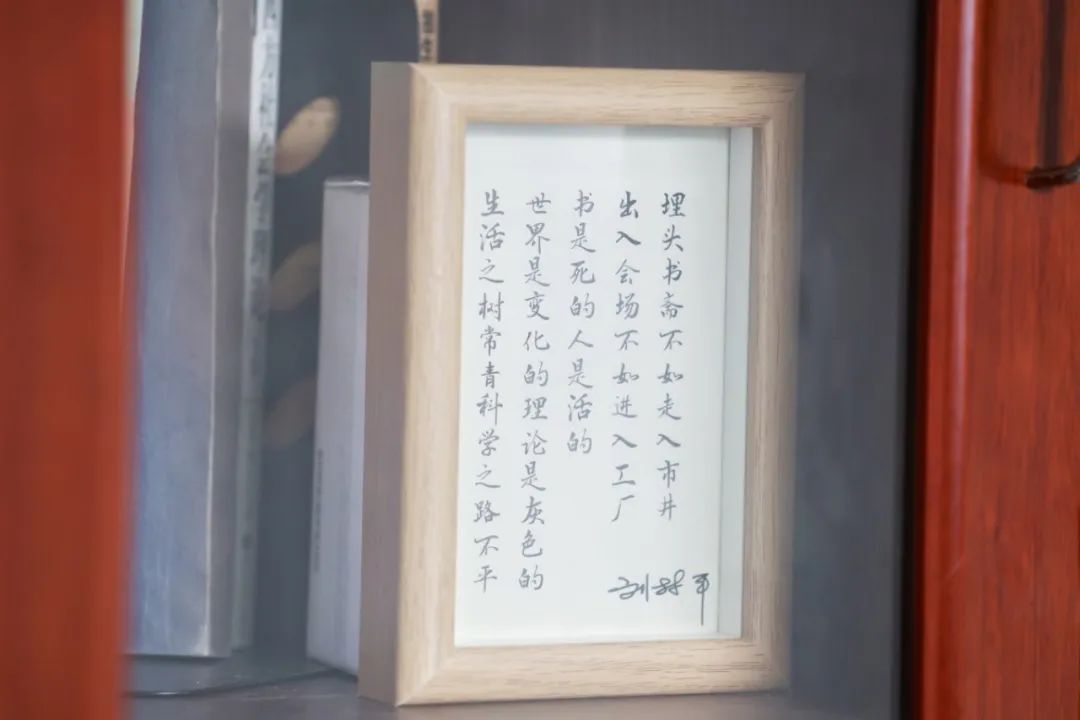 埋头书斋不如走入市井
出入会场不如进入工厂
书是死的人是活的
世界是变化的理论是灰色的
生活之树常青科学之路不平